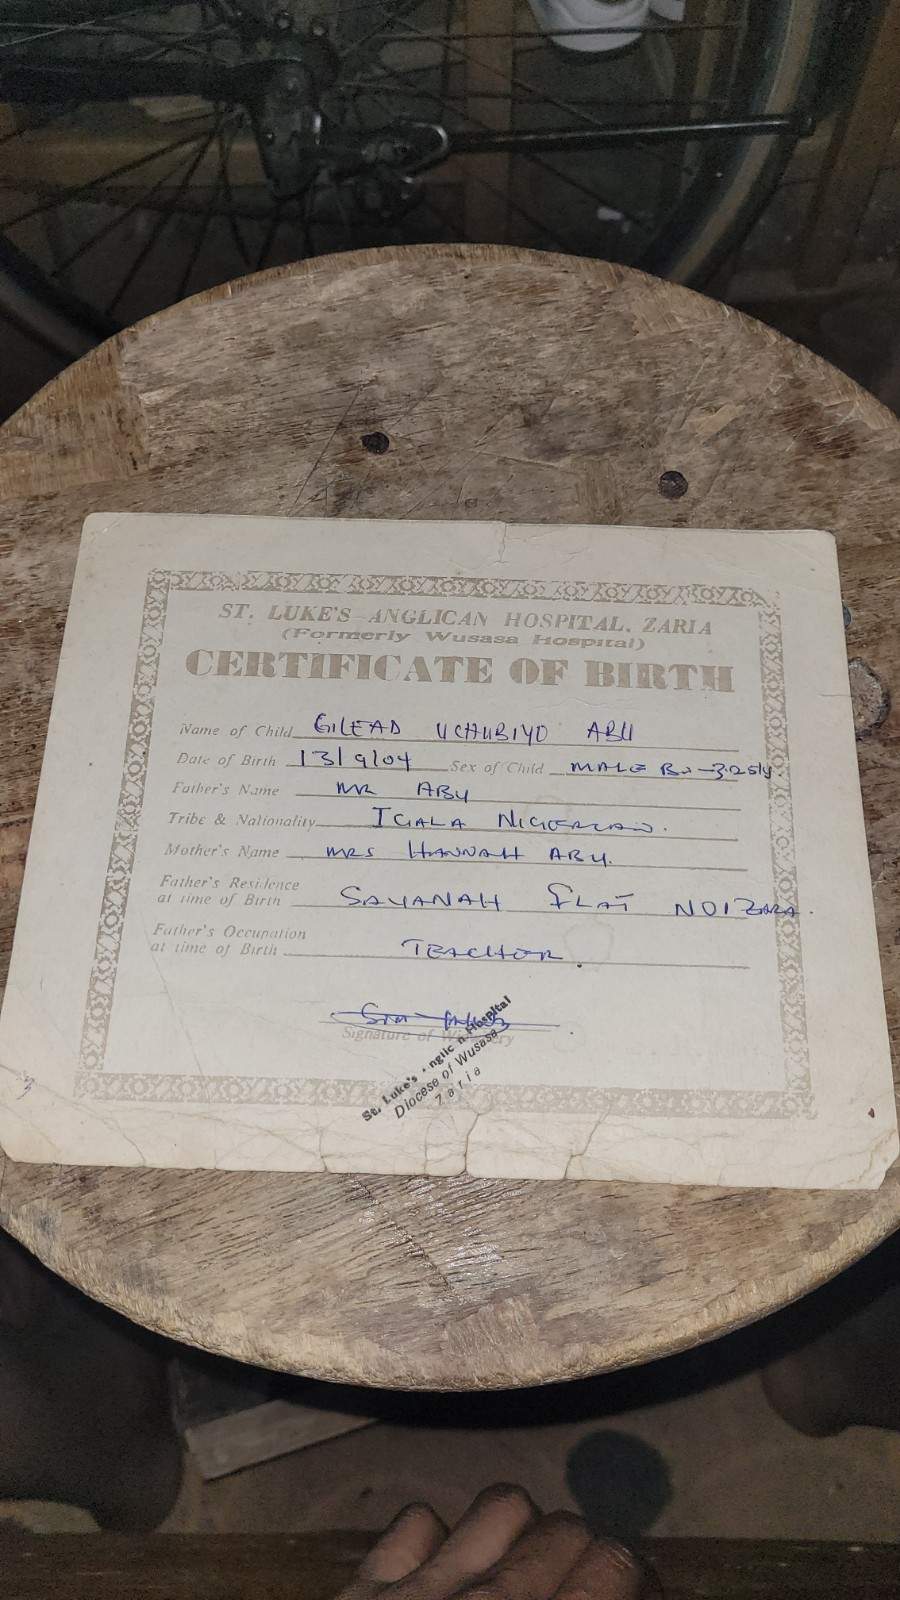 ST. LUKE'S ANGLICAN HOSPITAL, ZARIA
(Formerly Wusasa Hospital)
CERTIFICATE OF BIRTH
Name of Child GILEAD UCHUBIYO ABU
Date of Birth 13/9/04 Sex of Child MALE
Father's Name MR ABU
Tribe & Nationality IGALA NIGERIAN.
Mother's Name MRS HANNAH ABU.
Father's Residence
at time of Birth SAVANAH FLAT NO1 ZARIA.
Father's Occupation
at time of Birth TEACHER.
Signature of
St. Luke's Anglican Hospital
Diocese of Wusasa
Zaria